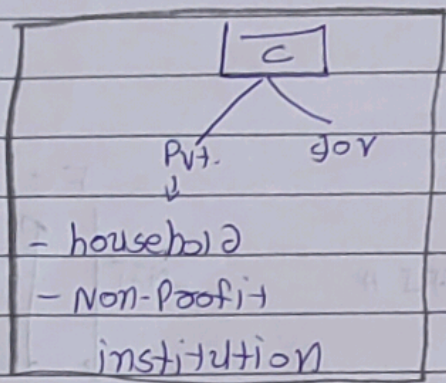 C
Pvt. gov
- household
- Non-Profit
institution